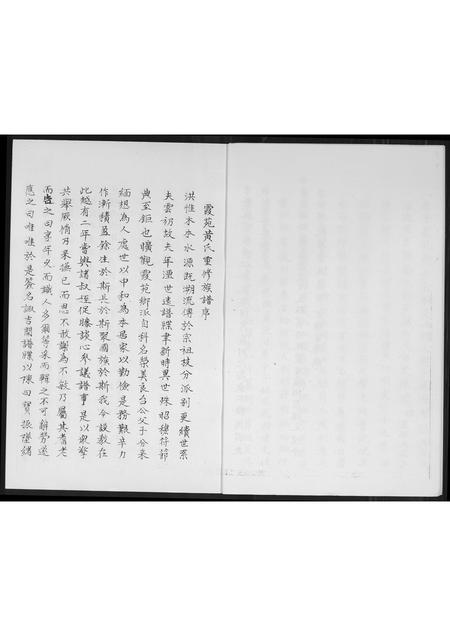 霞苑黃氏重修族譜序
洪惟本本水源既溯流傳於宗祖枝分派別更續世系
夫雲礽故夫年湮世遠譜牒聿新時異世殊昭穆符節
典至鉅也曠觀霞苑鄉派自科名榮美良台公父子分來
緬想為人處世以中和為本居家以勤儉是務艱辛力
作漸積盈餘生於斯長於斯聚國族於斯我今設教在
此越有二年嘗與諸叔侄促膝談心參議譜事是以眾擎
共舉厥脩乃來撫己而思不敢謝為不敏乃屬其耆老
而告之曰享年久而識人多爾等采而輯之不可辭勞遂
應之曰唯唯於是簽名諏吉開譜牒以陳曰寶振隆緒